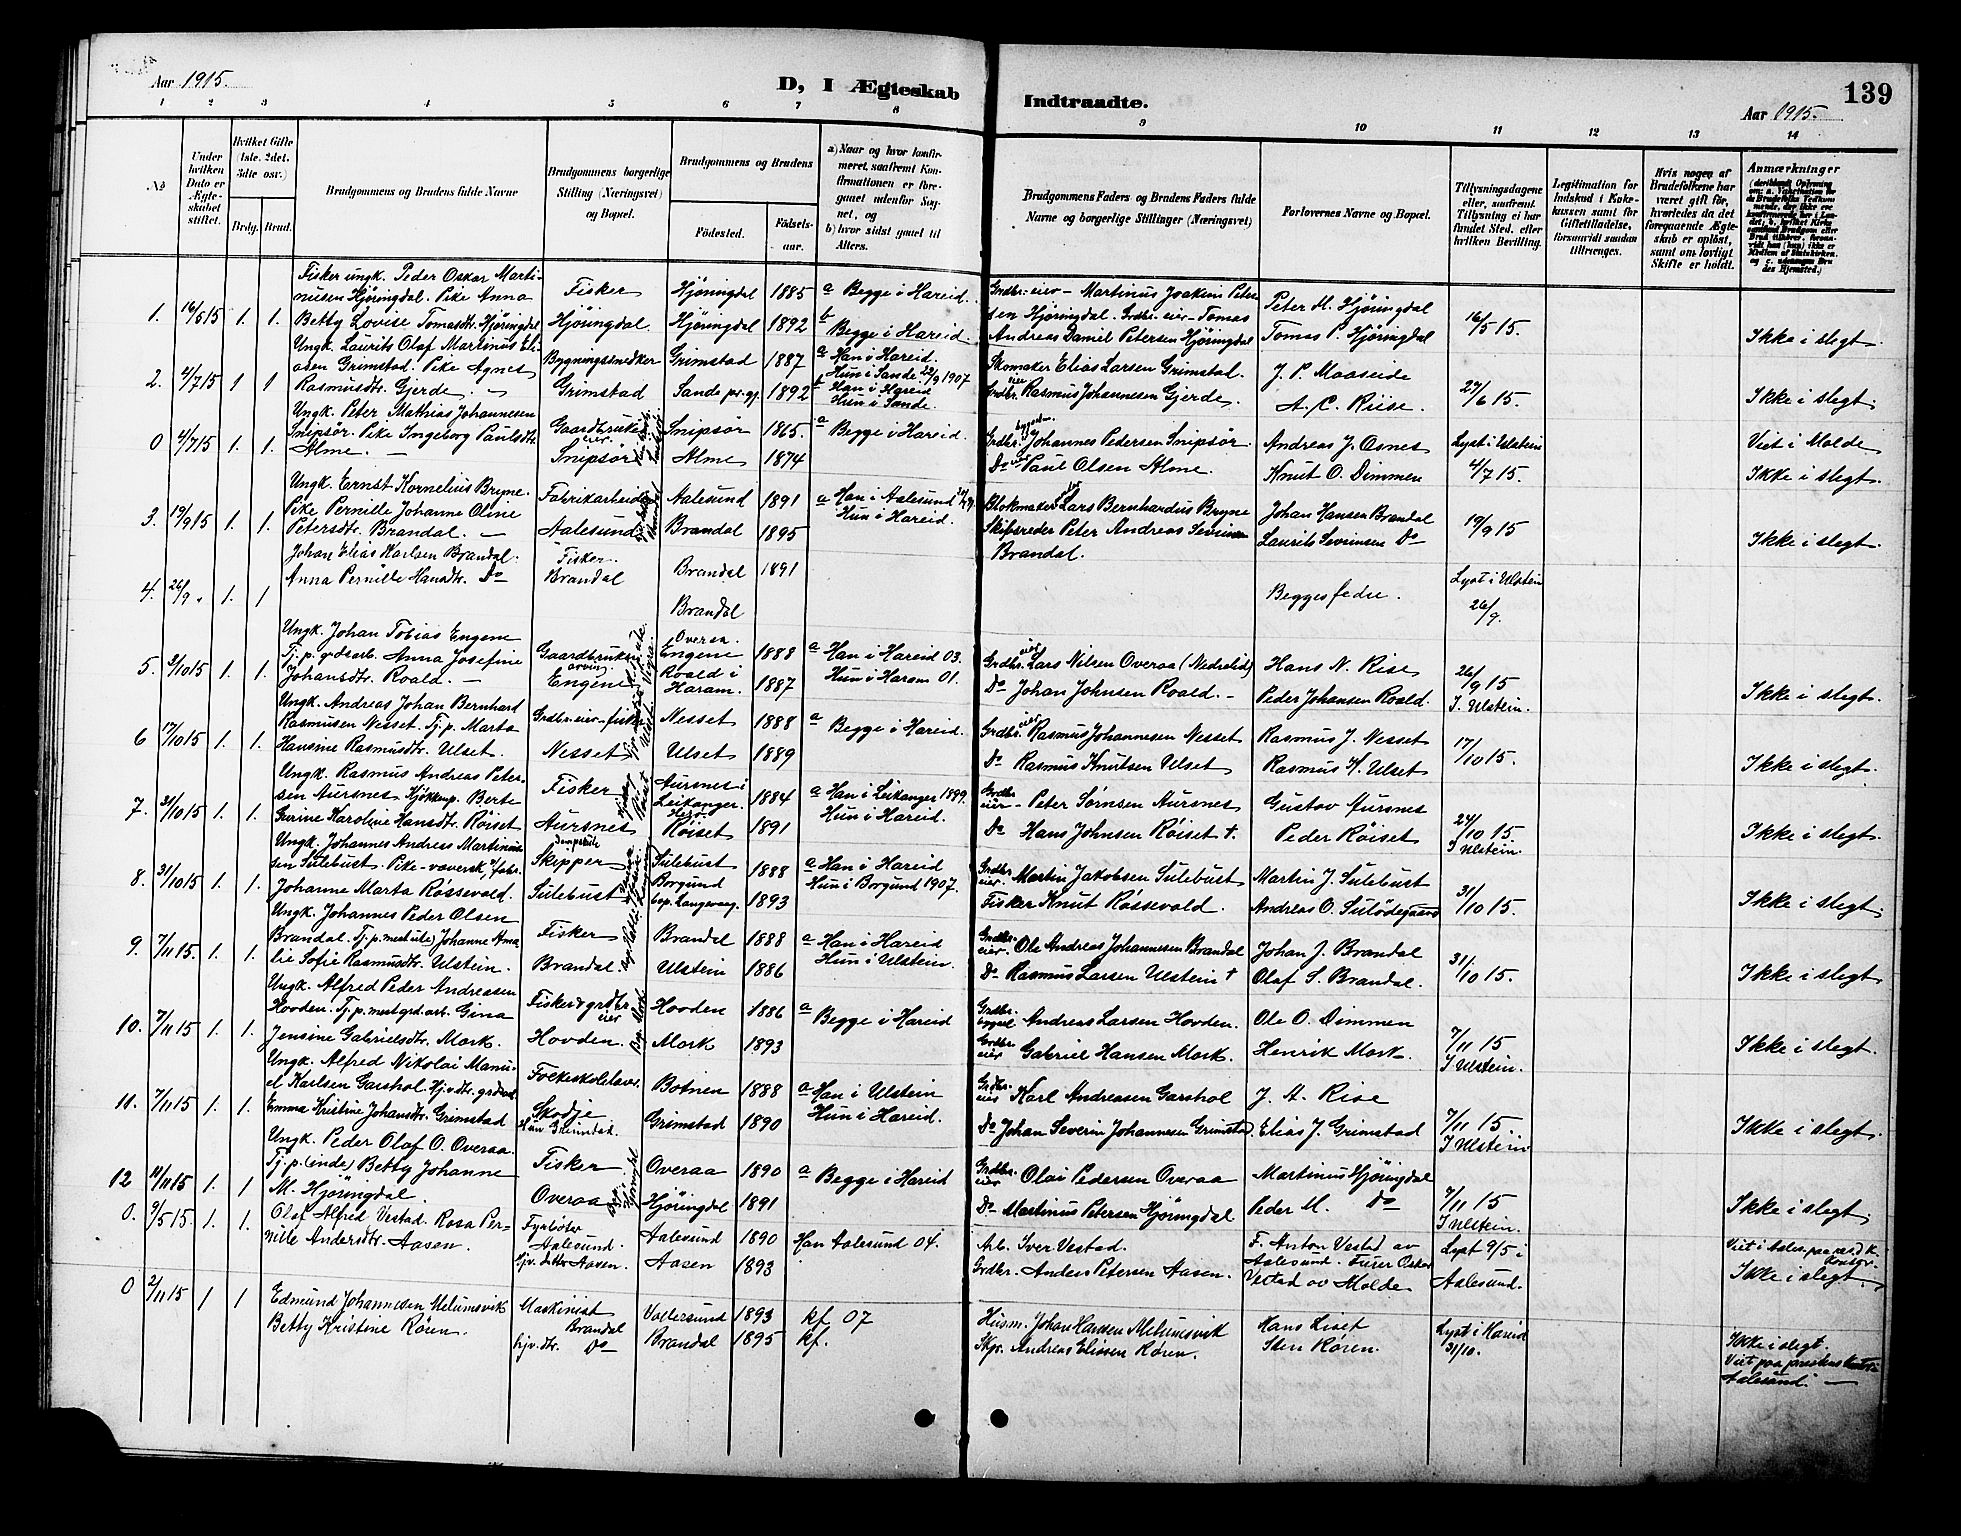 Aar 1915.
D, I Ægteskab
Indtraadte.
Aar 1915.
139
1 2 3 4 5 6 7 8 9 10 11 12 13 14
No
Under hvilken Dato er Ægteskabet stiftet.
Hvilket Gifte (1ste, 2det, 3die osv.)
Brdg. Brud.
Brudgommens og Brudens fulde Navne
Brudgommens borgerlige Stilling (Næringsvei) og Bopæl.
Brudgommens og Brudens
Fødested.
Fødsels-aar.
a) Naar og hvor konfirmeret, saafremt Konfirmationen er foregaaet udenfor Sognet, og
b) hvor sidst gaaet til Alters.
Brudgommens Faders og Brudens Faders fulde Navne og borgerlige Stillinger (Næringsvei)
Forlovernes Navne og Bopæl.
Tillysningsdagene eller, saafremt Tillysning ei har fundet Sted, efter hvilken Bevilling.
Legitimation for Indskud i Enkekassen samt for Giftetilladelse, forsaavidt saadan tiltrænges.
Hvis nogen af Brudefolkene har været gift før, hvorledes da det foregaaende Ægteskab er opløst, samt om lovligt Skifte er holdt.
Anmærkninger
1. 16/5 15 1. 1. Fisker ungk. Peder Oskar Martinusen Hjøringdal. Pike Anna Betty Lovise Tomasdtr. Hjøringdal
Fisker Hjøringdal Hjøringdal 1885 Hjøringdal 1892 a Begge i Hareid. b Begge i Hareid
Grdbr.-eier - Martinus Joakim Petersen Hjøringdal. Grdbr.-eier - Tomas Andreas Daniel Petersen Hjøringdal
Peter M. Hjøringdal Tomas P. Hjøringdal 16/5 15. Ikke i slegt.
2. 4/7 15 1 1 Ungk. Laurits Olaf Martinus Eliasen Grimstad. Pike Agnes Rasmusdtr. Gjerde.
Bygningssnedker Grimstad Grimstad 1887 Sande pr.gj. 1892 a Han i Hareid. Hun i Sande 22/9 1907 b Han i Hareid Hun i Sande.
Skomaker Elias Larsen Grimstad. Grdbr.eier Rasmus Johannesen Gjerde.
J. P. Maaseide A. C. Riise. 27/6 15. Ikke i slegt.
0 4/7 15 1. 1. Ungk. Peter Mathias Johannesen Snipsør. Pike Ingeborg Paulsdtr. Alme.
Gaardbruker eier Snipsør Snipsør 1865. Alme 1874 a Begge i Hareid.
Grdbr. Johannes Pedersen Snipsør. Do Paul Olsen Alme.
Andreas J. Osnes Knut O. Dimmen Lyst i Ulstein 4/7 15. Viet i Molde Ikke i slegt.
3. 19/9 15 1. 1. Ungk. Ernst Kornelius Bryne. Pike Pernille Johanne Oline Petersdtr. Brandal.
Fabrikarbeider Aalesund Aalesund 1891 Brandal 1895 a Han i Aalesund Hun i Hareid.
Blokmaker Lars Bernhardus Bryne Skibsreder Peter Andreas Sevrinsen Brandal.
Johan Hansen Brandal Laurits Sevrinsen Do 19/9 15 Ikke i slegt.
4. 26/9 1. 1 Johan Elias Karlsen Brandal. Anna Pernille Hansdtr. Do
Fisker. Brandal Brandal 1891 Brandal
Begges fedre. Lyst i Ulstein 26/9.
5 3/10 15 1. 1. Ungk. Johan Tobias Engene Tj. p. grdsarb. Anna Josefine Johansdtr. Roald.
Gaardbruker Engene Overaa. Engene 1888 Roald i Haram. 1887 a Han i Hareid 03. Hun i Haram 01.
Grdbr. eier Lars Nilsen Overaa (Nedrelid) Do Johan Johnsen Roald.
Hans N. Rise Peder Johansen Roald. 26/9 15 I Ulstein. Ikke i slegt.
6 17/10 15 1. 1. Ungk. Andreas Johan Bernhard Rasmusen Nesset. Tj. p. Marta Hansine Rasmusdtr. Ulset.
Grdbr.-eier-fisker Nesset Nesset 1888 Ulset 1889 a Begge i Hareid.
Grdbr. eier Rasmus Johannesen Nesset Do Rasmus Knutsen Ulset
Rasmus J. Nesset Rasmus K. Ulset 17/10 15. Ikke i slegt.
7. 31/10 15 1. 1. Ungk. Rasmus Andreas Petersen Aursnes Kjøkkenp. Berte Gurine Karoline Hansdtr. Røiset
Fisker Aursnes Aursnes i Leikanger 1884 Røiset 1891 a Han i Leikanger 1899. Hun i Hareid.
Grdbr. eier - Peter Sørnsen Aursnes Do Hans Johnsen Røiset †.
Gustav Aursnes Peder Røiset 24/10 15 I Ulstein. Ikke i slegt.
8. 31/10 15 1. 1. Ungk. Johannes Andreas Martinussen Sulebust. Pike - væversk, Johanne Marta Røssevold.
Skipper Sulebust Sulebust 1888 Borgund 1893 a Han i Hareid Hun i Borgund 1907.
Grdbr. eier - Martin Jakobsen Sulebust Fisker Knut Røssevold.
Martin J. Sulebust Andreas O. Sulødegaard 31/10 15. Ikke i slegt.
9. 7/11 15. 1. 1. Ungk. Johannes Peder Olsen Brandal. Tj. p. mest ute) Johanne Amalie Sofie Rasmusdtr. Ulstein.
Fisker Brandal. Brandal 1888 Ulstein 1886 a Han i Hareid Hun i Ulstein.
Grdbr. eier. Ole Andreas Johannesen Brandal Do Rasmus Larsen Ulstein †
Johan J. Brandal Olaf S. Brandal. 31/10 15. Ikke i slegt.
10. 7/11 15 1. 1. Ungk. Alfred Peder Andreassen Hovden. Tj. p. mest grd.arb. Gina Jensine Gabrielsdtr. Mork.
Fisker & grdbr. eier Hovden. Hovden 1886 Mork 1893 a Begge i Hareid
Andreas Larsen Hovden. Grdbr. eier Gabriel Hansen Mork.
Ole O. Dimmen Henrik Mork. 7/11 15 I Ulstein. Ikke i slegt.
11. 7/11 15 1. 1. Ungk. Alfred Nikolai Manuel Karlsen Garshol Hjv.dtr. Emma Kristine Johansdtr. Grimstad
Folkeskolelærer. Skodje Hun Grimstad. Botnen 1888 Grimstad 1890 a Han i Ulstein Hun i Hareid.
Grdbr. eier Karl Andreasen Garshol Do Johan Severin Johannesen Grimstad.
J. A. Rise Elias J. Grimstad 7/11 15. I Ulstein Ikke i slegt.
12 14/11 15 1. 1 Ungk. Peder Olaf O. Overaa. Tj. p. (inde) Betty Johanne M. Hjøringdal.
Fisker Overaa Overaa 1890 Hjøringdal 1891 a Begge i Hareid
Grdbr. eier. Olai Pedersen Overaa Do Martinus Petersen Hjøringdal
Martinus Hjøringdal Peder M. Do 7/11 15 I Ulstein. Ikke i slegt.
0. 9/5 15. 1. 1. Olaf Alfred Vestad. Rosa Pernille Andersdtr. Aasen.
Fyrbøter Aalesund. hjv. dtr. Aasen Aalesund 1890 Aasen 1893 Han Aalesund 04.
Arb. Iver Vestad. Grdbr. Anders Petersen Aasen.
F. Anton Vestad av Aalesund. Furer Oskar Vestad av Molde Lyst 9/5 i Aalesund. Ikke i slegt.
0 2/11 15 1 1 Edmund Johannesen Melumsvik Betty Kristine Røren.
Maskinist Brandal hjv. dtr. Do Vallersund 1893 Brandal 1895 kf 07 kf.
Husm. Johan Hansen Melumsvik Skpr. Andreas Elissen Røren.
Hans Liset Sten Røren. Lyst i Hareid 31/10. Ikke i slegt. Viet paa prestens kontor Aalesund.